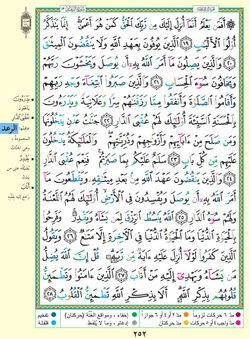 أَفَمَن يَعْلَمُ أَنَّمَآ أُنزِلَ إِلَيْكَ مِن رَّبِّكَ ٱلْحَقُّ كَمَنْ هُوَ أَعْمَىٰٓ إِنَّمَا يَتَذَكَّرُ
أُو۟لُوا۟ ٱلْأَلْبَـٰبِ ١٩ ٱلَّذِينَ يُوفُونَ بِعَهْدِ ٱللَّهِ وَلَا يَنقُضُونَ ٱلْمِيثَـٰقَ
٢٠ وَٱلَّذِينَ يَصِلُونَ مَآ أَمَرَ ٱللَّهُ بِهِۦٓ أَن يُوصَلَ وَيَخْشَوْنَ رَبَّهُمْ
وَيَخَافُونَ سُوٓءَ ٱلْحِسَابِ ٢١ وَٱلَّذِينَ صَبَرُوا۟ ٱبْتِغَآءَ وَجْهِ رَبِّهِمْ
وَأَقَامُوا۟ ٱلصَّلَوٰةَ وَأَنفَقُوا۟ مِمَّا رَزَقْنَـٰهُمْ سِرًّا وَعَلَانِيَةً وَيَدْرَءُونَ
بِٱلْحَسَنَةِ ٱلسَّيِّئَةَ أُو۟لَـٰٓئِكَ لَهُمْ عُقْبَى ٱلدَّارِ ٢٢ جَنَّـٰتُ عَدْنٍ يَدْخُلُونَهَا
وَمَن صَلَحَ مِنْ ءَابَآئِهِمْ وَأَزْوَٰجِهِمْ وَذُرِّيَّـٰتِهِمْ وَٱلْمَلَـٰٓئِكَةُ يَدْخُلُونَ
عَلَيْهِم مِّن كُلِّ بَابٍ ٢٣ سَلَـٰمٌ عَلَيْكُم بِمَا صَبَرْتُمْ فَنِعْمَ عُقْبَى ٱلدَّارِ
٢٤ وَٱلَّذِينَ يَنقُضُونَ عَهْدَ ٱللَّهِ مِنۢ بَعْدِ مِيثَـٰقِهِۦ وَيَقْطَعُونَ مَآ
أَمَرَ ٱللَّهُ بِهِۦٓ أَن يُوصَلَ وَيُفْسِدُونَ فِى ٱلْأَرْضِ أُو۟لَـٰٓئِكَ لَهُمُ ٱللَّعْنَةُ
وَلَهُمْ سُوٓءُ ٱلدَّارِ ٢٥ ٱللَّهُ يَبْسُطُ ٱلرِّزْقَ لِمَن يَشَآءُ وَيَقْدِرُ وَفَرِحُوا۟
بِٱلْحَيَوٰةِ ٱلدُّنْيَا وَمَا ٱلْحَيَوٰةُ ٱلدُّنْيَا فِى ٱلْـَٔاخِرَةِ إِلَّا مَتَـٰعٌ ٢٦ وَيَقُولُ
ٱلَّذِينَ كَفَرُوا۟ لَوْلَآ أُنزِلَ عَلَيْهِ ءَايَةٌ مِّن رَّبِّهِۦ قُلْ إِنَّ ٱللَّهَ يُضِلُّ
مَن يَشَآءُ وَيَهْدِىٓ إِلَيْهِ مَنْ أَنَابَ ٢٧ ٱلَّذِينَ ءَامَنُوا۟ وَتَطْمَئِنُّ
قُلُوبُهُم بِذِكْرِ ٱللَّهِ أَلَا بِذِكْرِ ٱللَّهِ تَطْمَئِنُّ ٱلْقُلُوبُ ٢٨
الرعد
٢٥٢